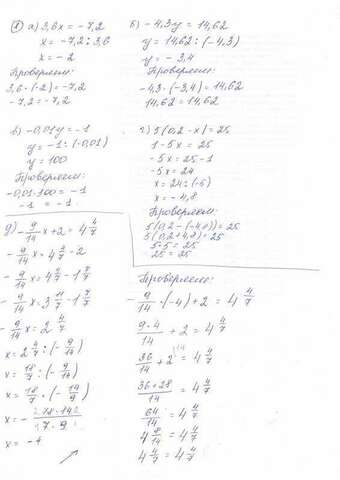 ① а) 3,6x = -7,2
x = -7,2 : 3,6
x = -2
Проверяем:
3,6 · (-2) = -7,2
-7,2 = -7,2
б) -4,3y = 14,62
y = 14,62 : (-4,3)
y = -3,4
Проверяем:
-4,3 · (-3,4) = 14,62
14,62 = 14,62
в) -0,01y = -1
y = -1 : (-0,01)
y = 100
Проверяем:
-0,01 · 100 = -1
-1 = -1
г) 5(0,2 - x) = 25
1 - 5x = 25
-5x = 25 - 1
-5x = 24
x = 24 : (-5)
x = -4,8
Проверяем:
5(0,2 - (-4,8)) = 25
5(0,2 + 4,8) = 25
5 · 5 = 25
25 = 25
д) -9/14 x + 2 = 4 4/7
-9/14 x = 4 4/7 - 2
-9/14 x = 4 4/7 - 1 7/7
-9/14 x = 3 11/7 - 1 7/7
-9/14 x = 2 4/7
x = 2 4/7 : (-9/14)
x = 18/7 : (-9/14)
x = 18/7 · (-14/9)
x = - 18·14 / 7·9
x = -4
Проверяем:
-9/14 · (-4) + 2 = 4 4/7
9·4/14 + 2 = 4 4/7
36/14 + 2 \14 = 4 4/7
36+28/14 = 4 4/7
64/14 = 4 4/7
4 8/14 = 4 4/7
4 4/7 = 4 4/7